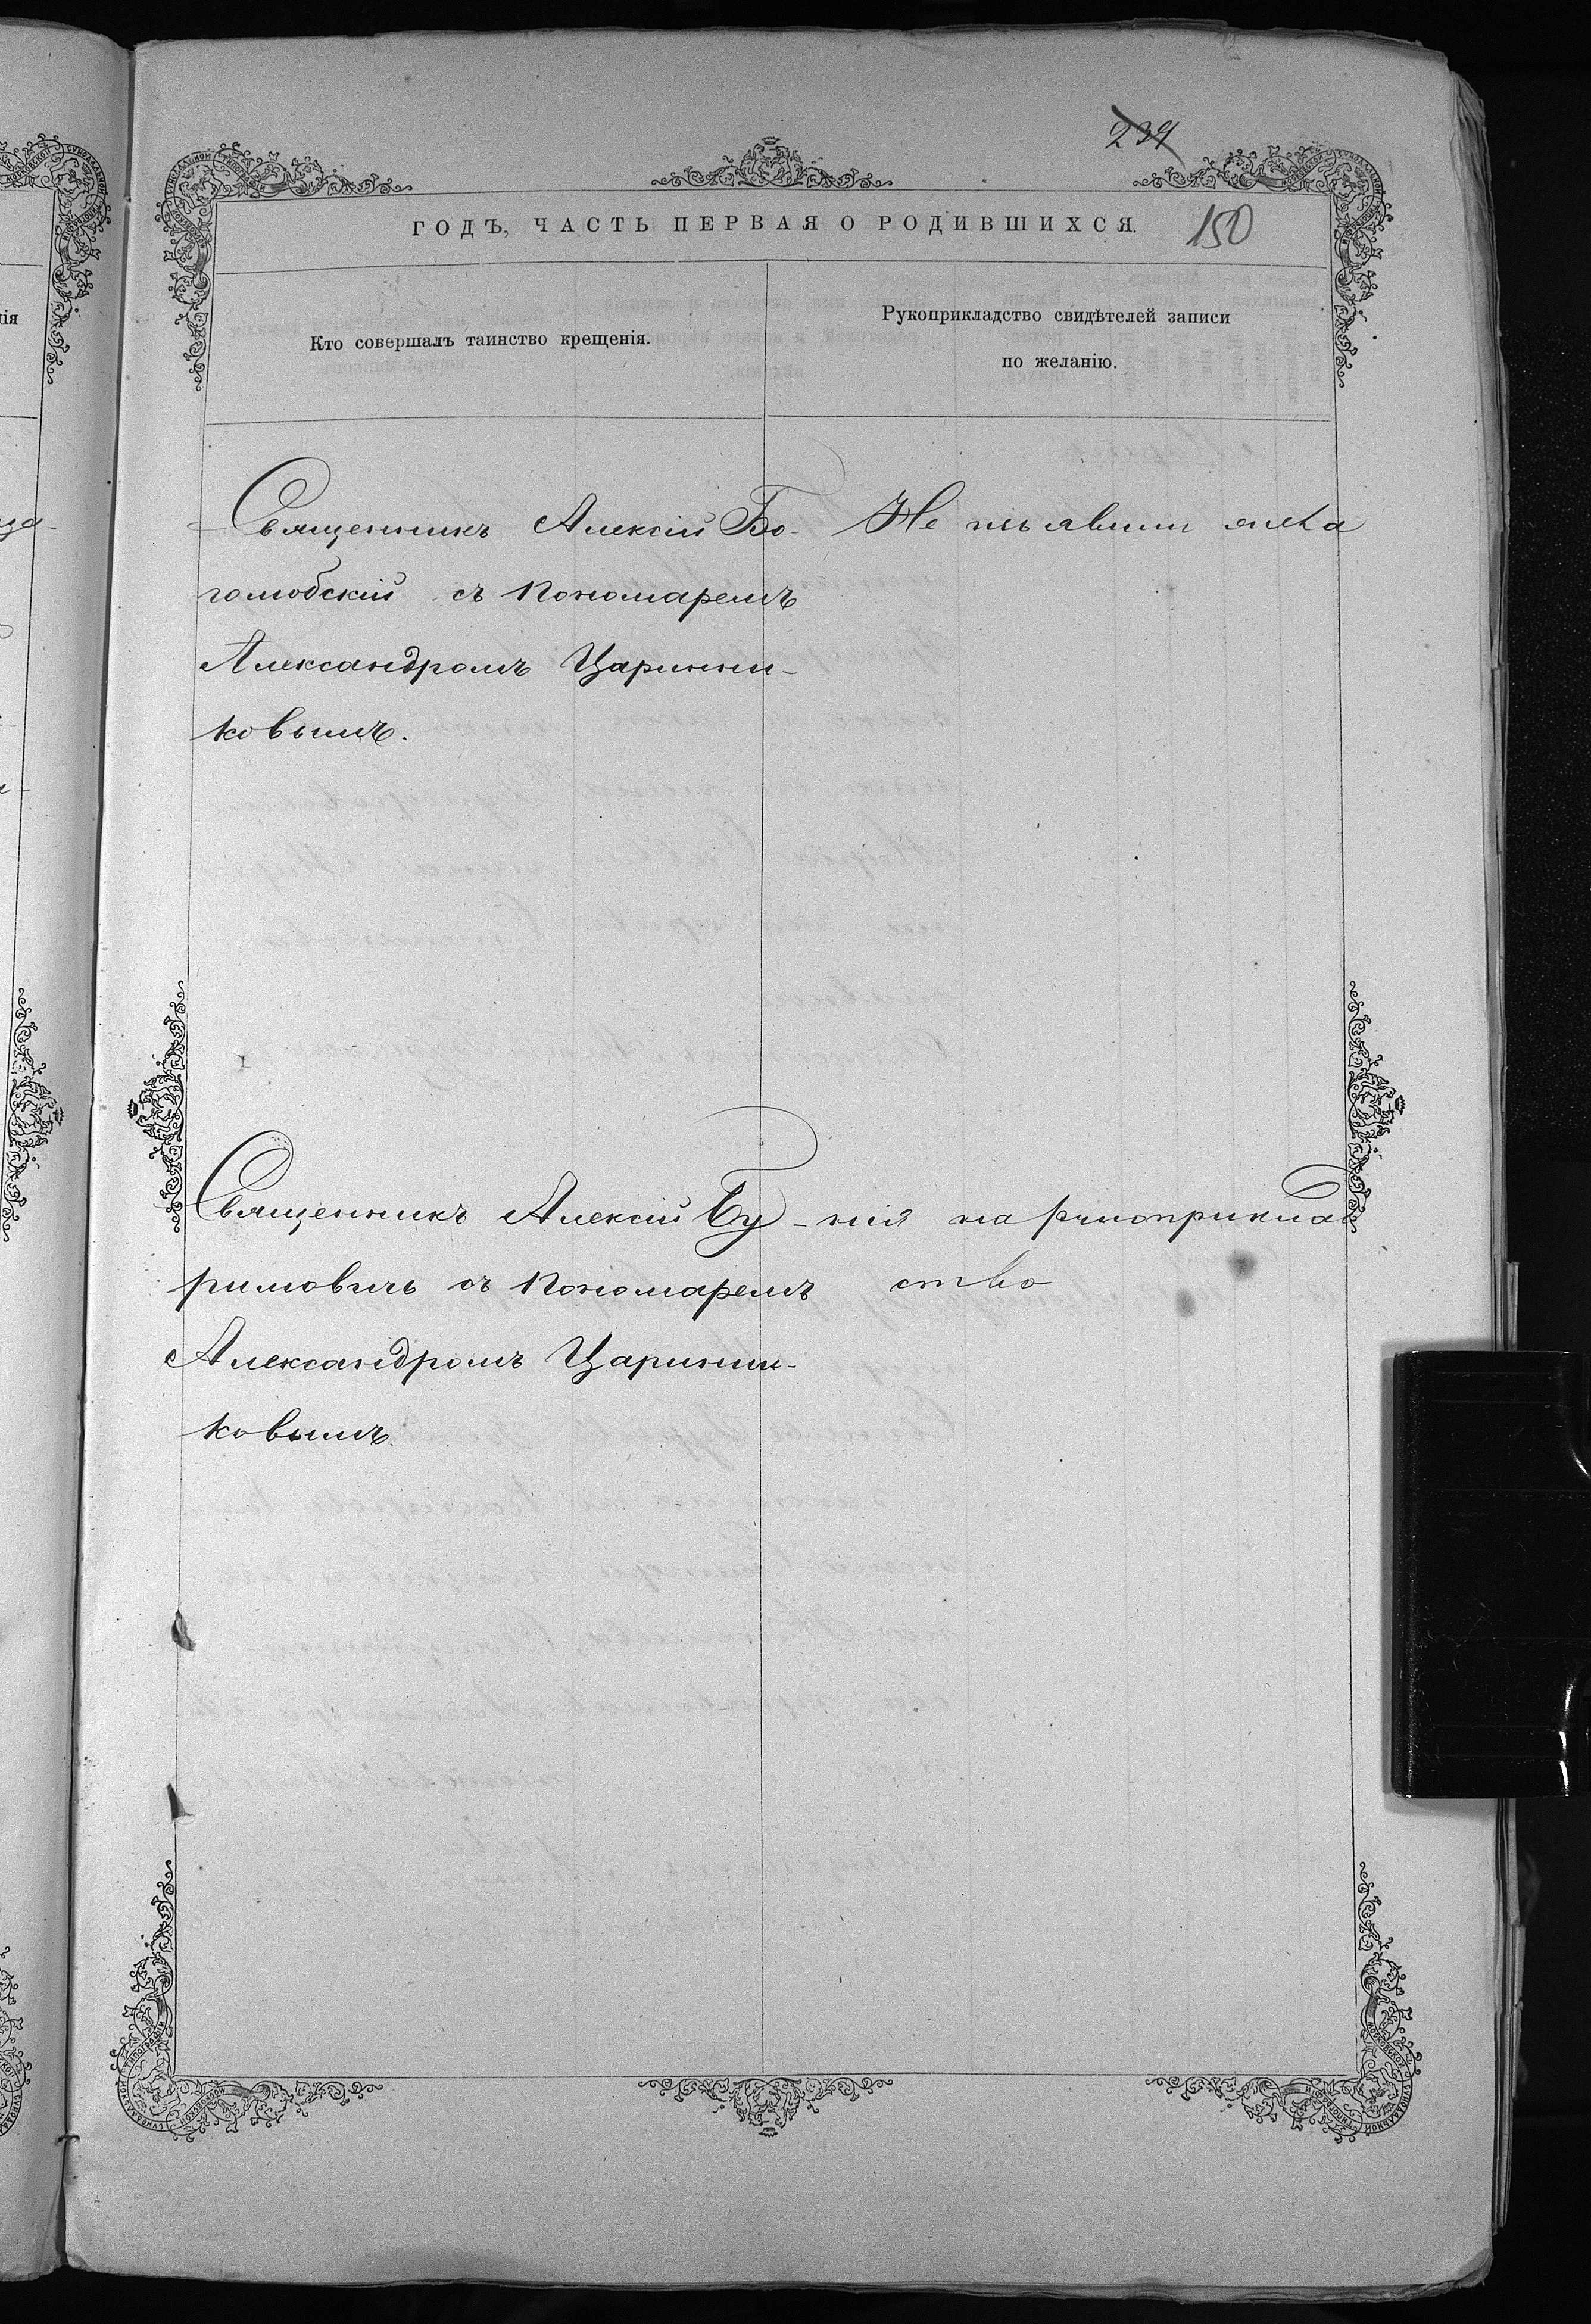 239
ГОДЪ, ЧАСТЬ ПЕРВАЯ О РОДИВШИХСЯ. 150
Кто совершалъ таинство крещенія.
Рукоприкладство свидѣтелей записи
по желанію.
Священникъ Алексій Бо-
голюбскій съ Пономаремъ
Александромъ Царинни-
ковымъ.
Не изъявили жела
Священникъ Алексій Бу-
римовичъ съ Пономаремъ
Александромъ Царинни-
ковымъ.
нія на рукоприклад
ство